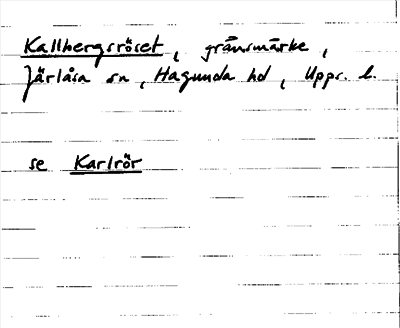 Kallbergsröset, gränsmärke,
Järlåsa sn, Hagunda hd, Upps. l.
se Karlrör